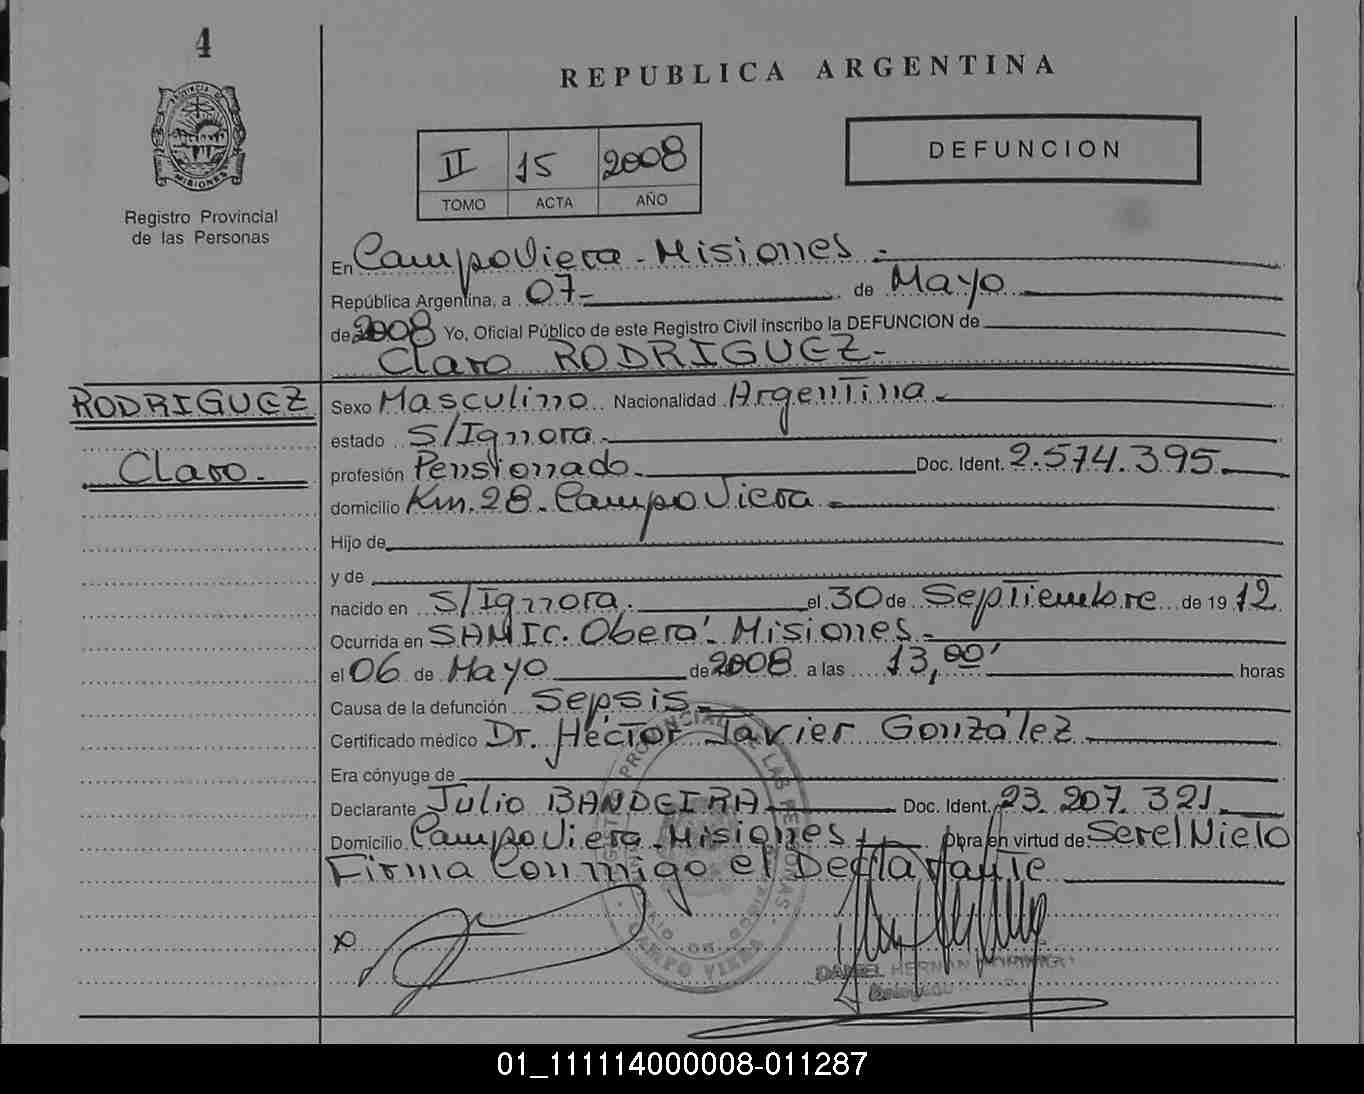 4
PROVINCIA DE
MISIONES
Registro Provincial
de las Personas
REPUBLICA ARGENTINA
II 15 2008
TOMO ACTA AÑO
DEFUNCION
En Campo Viera - Misiones -
República Argentina, a 07- de Mayo
de 2008 Yo, Oficial Público de este Registro Civil inscribo la DEFUNCION de
Claro RODRIGUEZ-
RODRIGUEZ
Claro.
Sexo Masculino Nacionalidad Argentina
estado S/Ignora
profesión Pensionado Doc. Ident. 2.574.395.
domicilio Km. 28 - Campo Viera
Hijo de
y de
nacido en S/Ignora. el 30 de Septiembre de 1912
Ocurrida en SAMIC. Oberá. Misiones -
el 06 de Mayo de 2008 a las 13,00' horas
Causa de la defunción Sepsis
Certificado médico Dr. Héctor Javier González
Era cónyuge de
Declarante Julio BANDEIRA Doc. Ident. 23.207.321.
Domicilio Campo Viera. Misiones Obra en virtud de Ser el Nieto
Firma Conmigo el Declarante
PROVINCIAL DE LAS PERSONAS
CAMPO VIERA
DANIEL HERNAN
01_111114000008-011287